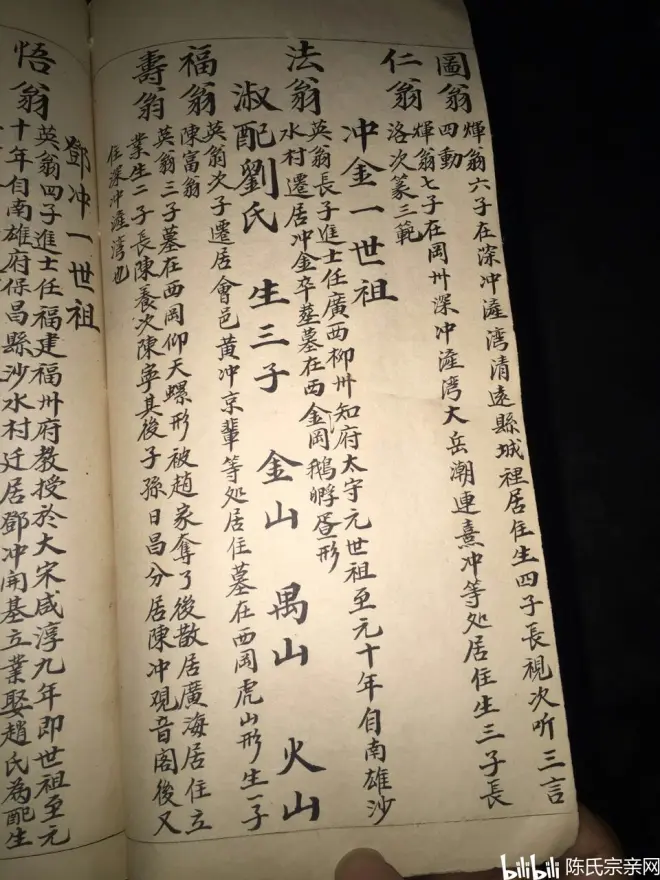 圖翁 輝翁六子在深冲漨湾清遠縣城裡居住生四子長視次听三言
四動
仁翁 輝翁七子在岡州深冲漨湾大岳潮連熹冲等处居住生三子長
洛次篆三範
冲金一世祖
法翁 英翁長子進士任廣西柳州知府太守元世祖至元十年自南雄沙
水村遷居冲金卒塟墓在西金岡鵝孵蛋形
淑配劉氏 生三子 金山 禺山 火山
福翁 英翁次子遷居會邑黄冲京輩等处居住墓在西岡虎山形生一子
陳富翁
壽翁 英翁三子墓在西岡仰天螺形被趙家奪了後散居廣海居住立
業生二子長陳養次陳寧其後子孫日昌分居陳冲观音阁後又
住深冲漨湾也
鄧冲一世祖
悟翁 英翁四子進士任福建福州府教授於大宋咸淳九年即世祖至元
十年自南雄府保昌縣沙水村迁居鄧冲開基立業娶趙氏為配生
bilibili 陈氏宗亲网